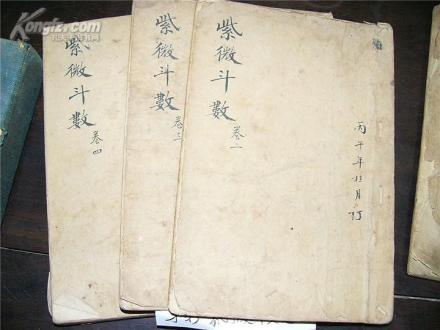 Kongfz.com
紫微斗數
卷四
紫微斗數
卷三
紫微斗數
卷二
丙午年桂月订